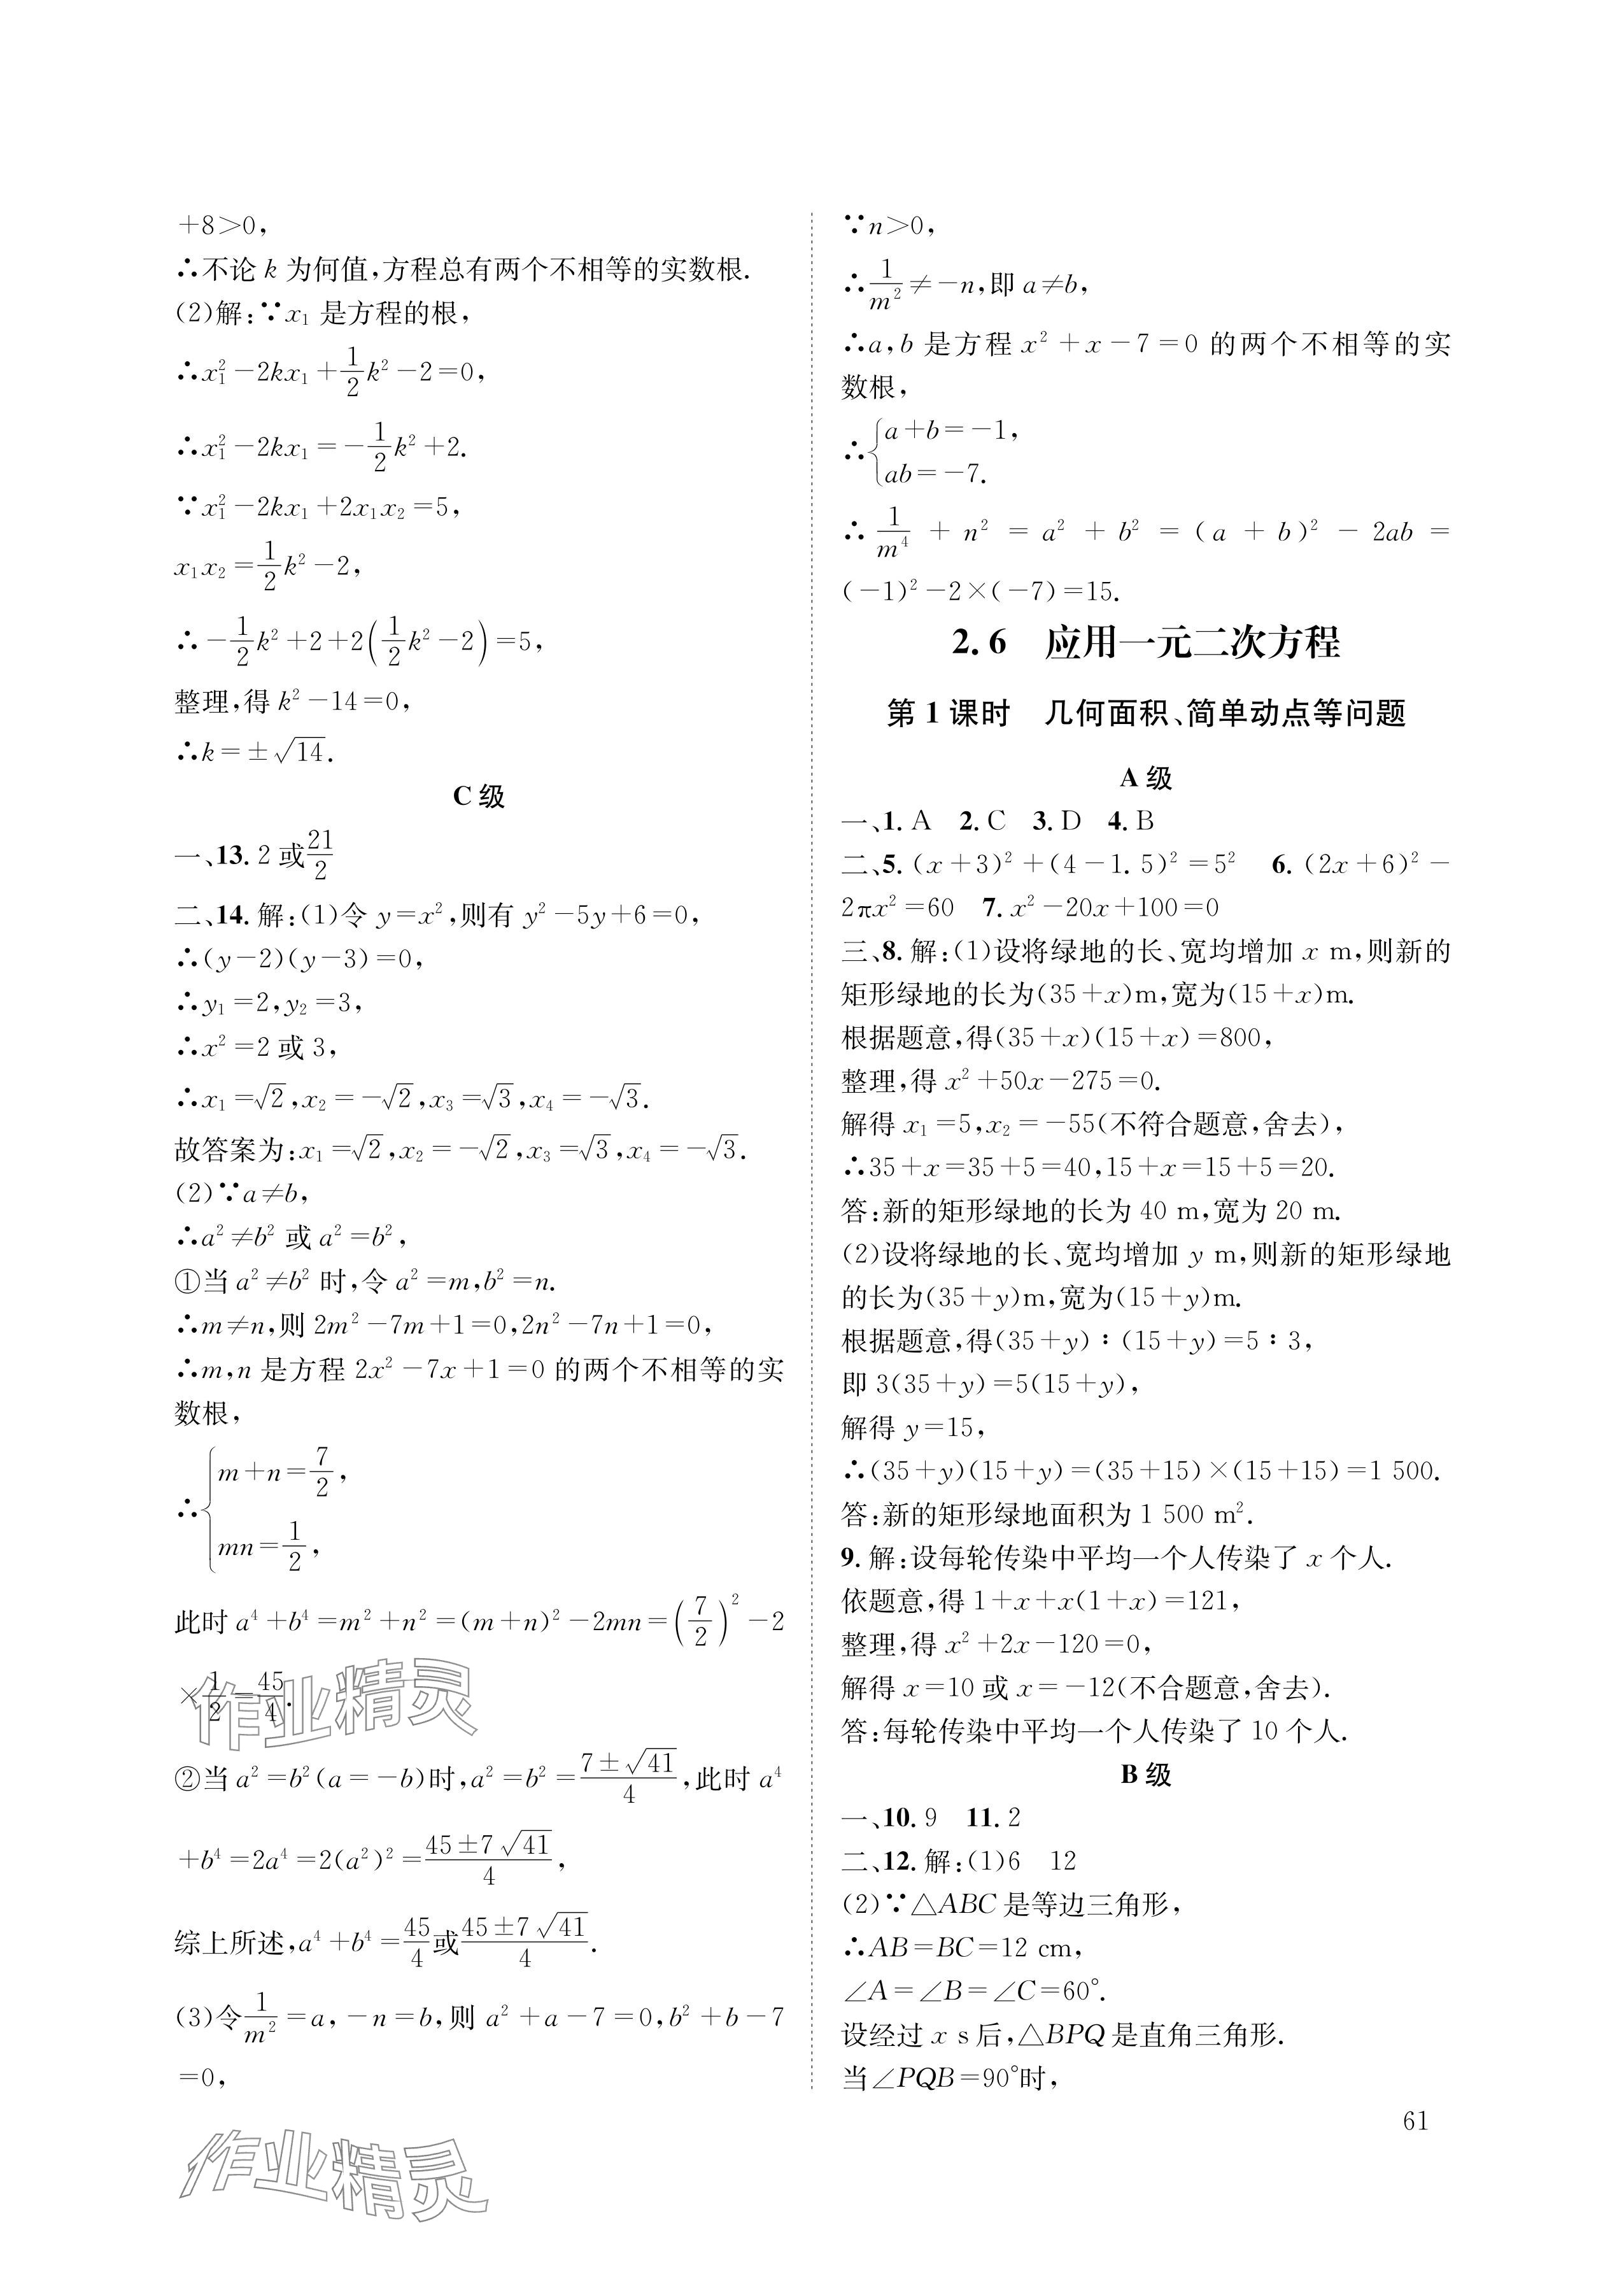 +8>0,
∴不论 k 为何值,方程总有两个不相等的实数根.
(2)解:∵x₁ 是方程的根,
∴x₁²-2kx₁+\frac{1}{2}k²-2=0,
∴x₁²-2kx₁=-\frac{1}{2}k²+2.
∵x₁²-2kx₁+2x₁x₂=5,
x₁x₂=\frac{1}{2}k²-2,
∴-\frac{1}{2}k²+2+2(\frac{1}{2}k²-2)=5,
整理,得 k²-14=0,
∴k=±√14.
C 级
一、13. 2 或\frac{21}{2}
二、14. 解:(1)令 y=x²,则有 y²-5y+6=0,
∴(y-2)(y-3)=0,
∴y₁=2,y₂=3,
∴x²=2 或 3,
∴x₁=√2,x₂=-√2,x₃=√3,x₄=-√3.
故答案为:x₁=√2,x₂=-√2,x₃=√3,x₄=-√3.
(2)∵a≠b,
∴a²≠b² 或 a²=b²,
①当 a²≠b² 时,令 a²=m,b²=n.
∴m≠n,则 2m²-7m+1=0,2n²-7n+1=0,
∴m,n 是方程 2x²-7x+1=0 的两个不相等的实
数根,
∴{m+n=\frac{7}{2},
mn=\frac{1}{2},
此时 a⁴+b⁴=m²+n²=(m+n)²-2mn=(\frac{7}{2})²-2
×\frac{1}{2}=\frac{45}{4}.
②当 a²=b²(a=-b)时,a²=b²=\frac{7±√41}{4},此时 a⁴
+b⁴=2a⁴=2(a²)²=\frac{45±7√41}{4},
综上所述,a⁴+b⁴=\frac{45}{4}或\frac{45±7√41}{4}.
(3)令\frac{1}{m²}=a,-n=b,则 a²+a-7=0,b²+b-7
=0,
∵n>0,
∴\frac{1}{m²}≠-n,即 a≠b,
∴a,b 是方程 x²+x-7=0 的两个不相等的实
数根,
∴{a+b=-1,
ab=-7.
∴\frac{1}{m⁴}+n²=a²+b²=(a+b)²-2ab=
(-1)²-2×(-7)=15.
2.6 应用一元二次方程
第 1 课时 几何面积、简单动点等问题
A 级
一、1. A 2. C 3. D 4. B
二、5. (x+3)²+(4-1.5)²=5² 6. (2x+6)²-
2πx²=60 7. x²-20x+100=0
三、8. 解:(1)设将绿地的长、宽均增加 x m,则新的
矩形绿地的长为(35+x)m,宽为(15+x)m.
根据题意,得(35+x)(15+x)=800,
整理,得 x²+50x-275=0.
解得 x₁=5,x₂=-55(不符合题意,舍去),
∴35+x=35+5=40,15+x=15+5=20.
答:新的矩形绿地的长为 40 m,宽为 20 m.
(2)设将绿地的长、宽均增加 y m,则新的矩形绿地
的长为(35+y)m,宽为(15+y)m.
根据题意,得(35+y)∶(15+y)=5∶3,
即 3(35+y)=5(15+y),
解得 y=15,
∴(35+y)(15+y)=(35+15)×(15+15)=1 500.
答:新的矩形绿地面积为 1 500 m².
9. 解:设每轮传染中平均一个人传染了 x 个人.
依题意,得 1+x+x(1+x)=121,
整理,得 x²+2x-120=0,
解得 x=10 或 x=-12(不合题意,舍去).
答:每轮传染中平均一个人传染了 10 个人.
B 级
一、10. 9 11. 2
二、12. 解:(1)6 12
(2)∵△ABC 是等边三角形,
∴AB=BC=12 cm,
∠A=∠B=∠C=60°.
设经过 x s 后,△BPQ 是直角三角形.
当∠PQB=90°时,
61
作业精灵
作业精灵